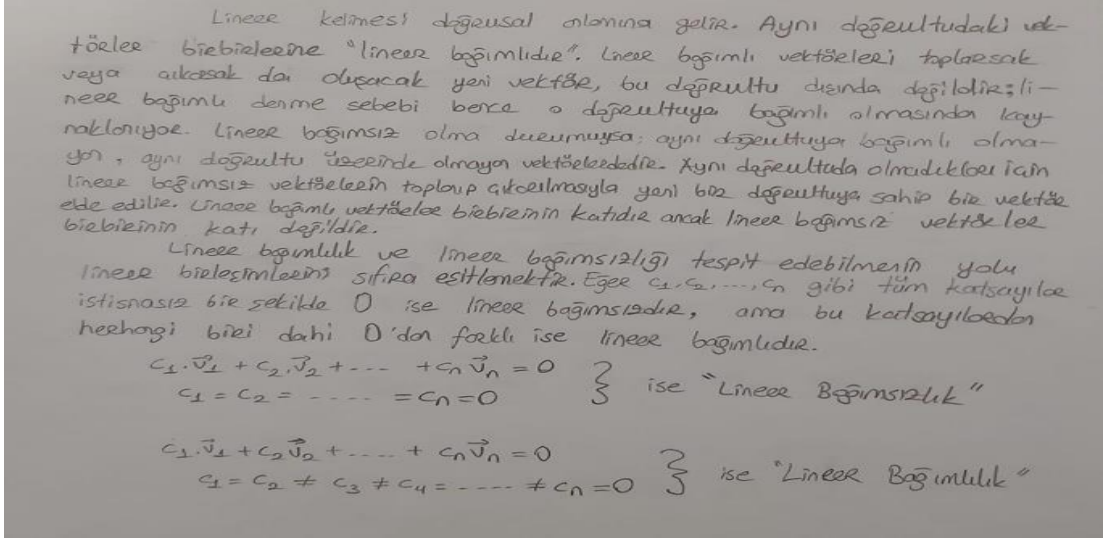 Lineer kelimesi doğrusal anlamına gelir. Aynı doğrultudaki vek-
törler birbirlerine "lineer bağımlıdır". Lineer bağımlı vektörleri toplarsak
veya çıkarsak da oluşacak yeni vektör, bu doğrultu dışında değildir; li-
neer bağımlı denme sebebi bence o doğrultuya bağımlı olmasından kay-
naklanıyor. Lineer bağımsız olma durumuysa; aynı doğrultuya bağımlı olma-
yan, aynı doğrultu üzerinde olmayan vektörlerdedir. Aynı doğrultuda olmadıkları için
lineer bağımsız vektörlerin toplanıp çıkarılmasıyla yeni bir doğrultuya sahip bir vektör
elde edilir. Lineer bağımlı vektörler birbirinin katıdır ancak lineer bağımsız vektörler
birbirinin katı değildir.
Lineer bğımlılık ve lineer bağımsızlığı tespit edebilmenin yolu
lineer birleşimlerini sıfıra eşitlemektir. Eğer c₁, c₂, ...., cn gibi tüm katsayılar
istisnasız bir şekilde 0 ise lineer bağımsızdır, ama bu katsayılardan
herhangi biri dahi 0'dan farklı ise lineer bağımlıdır.
c₁.v⃗₁ + c₂.v⃗₂ + .... + cn v⃗n = 0
c₁ = c₂ = ..... = cn = 0 } ise "Lineer Bağımsızlık"
c₁.v⃗₁ + c₂v⃗₂ + ..... + cn v⃗n = 0
c₁ = c₂ ≠ c₃ ≠ c₄ = ..... ≠ cn = 0 } ise "Lineer Bağımlılık"